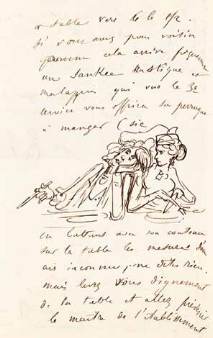 à table vers de le 1/2
si vous avez pour voisin
comme cela arrive
un Yankee rustique et
qui vers le 3e
service vous offrira sa perruque
à manger (sic
en battant avec son couteau
sur la table les mesures d'un
air inconnu, ne dites rien
mais levez vous dignement
de la table et allez
le maître de l'établissement